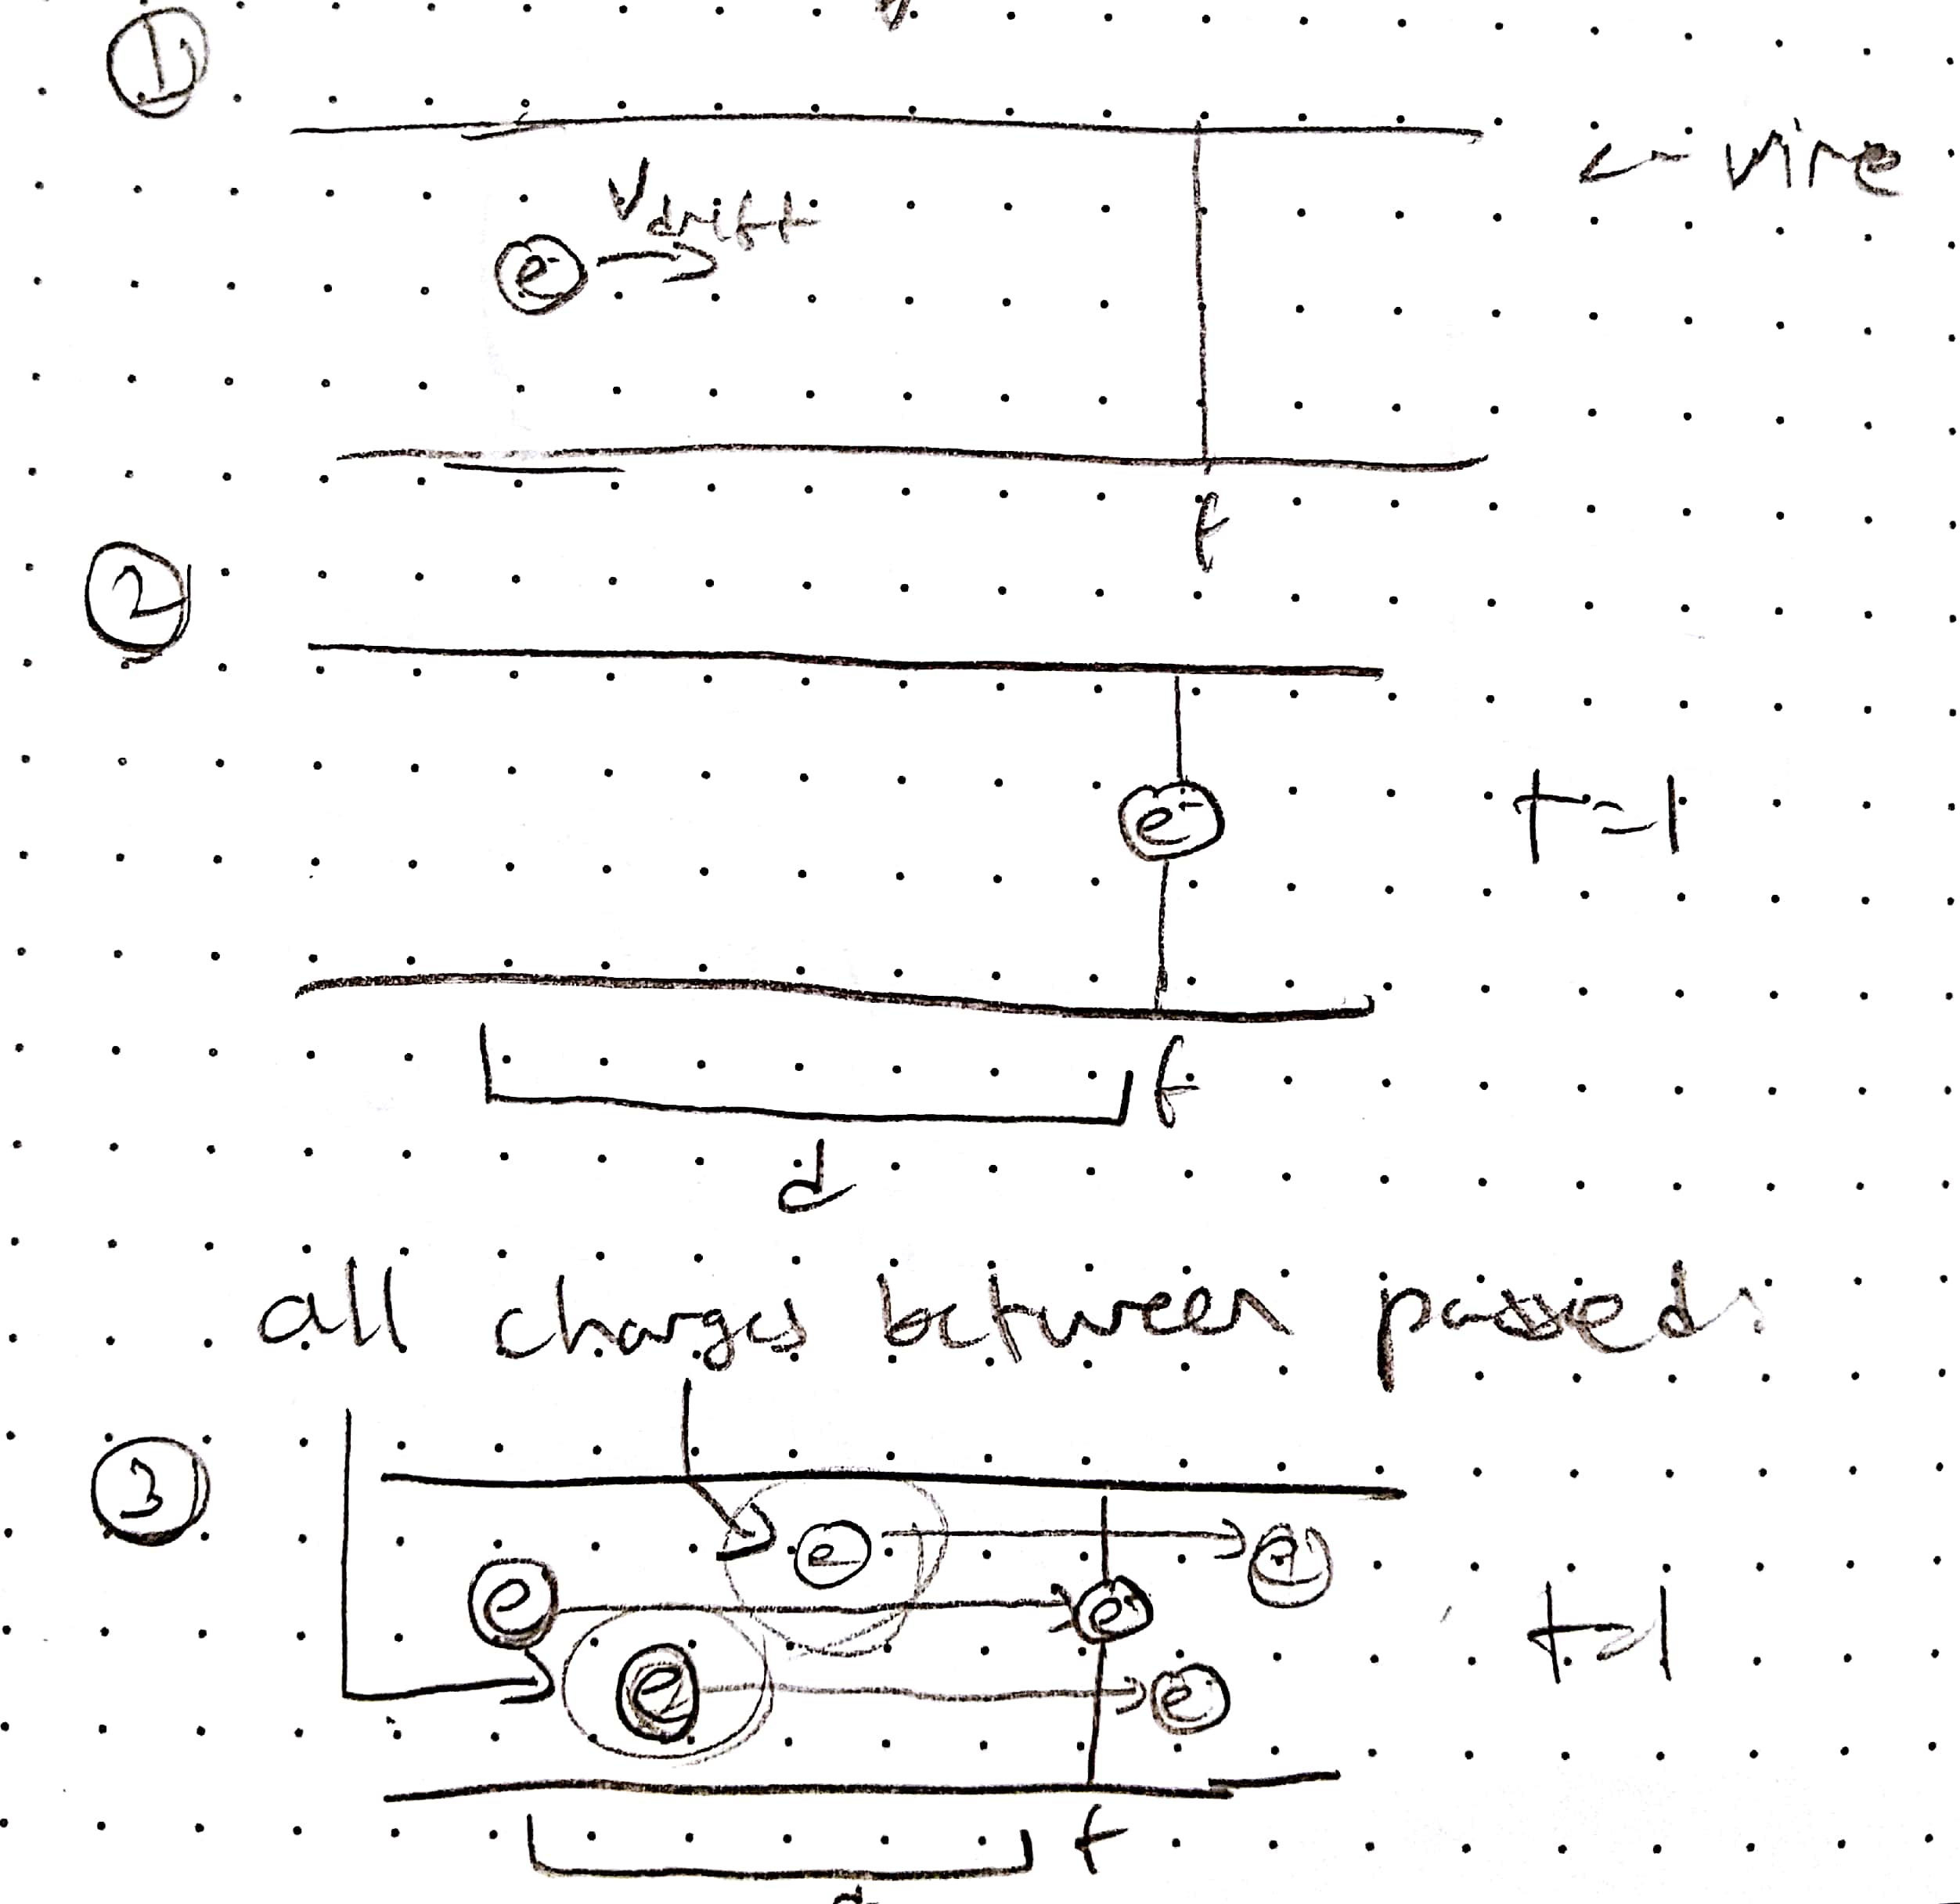 1
← wire
Vdrift
e⁻
f
2
e⁻
t=1
f
d
all charges between passed:
3
e e⁻
e e⁻ t=1
e e⁻
f
d